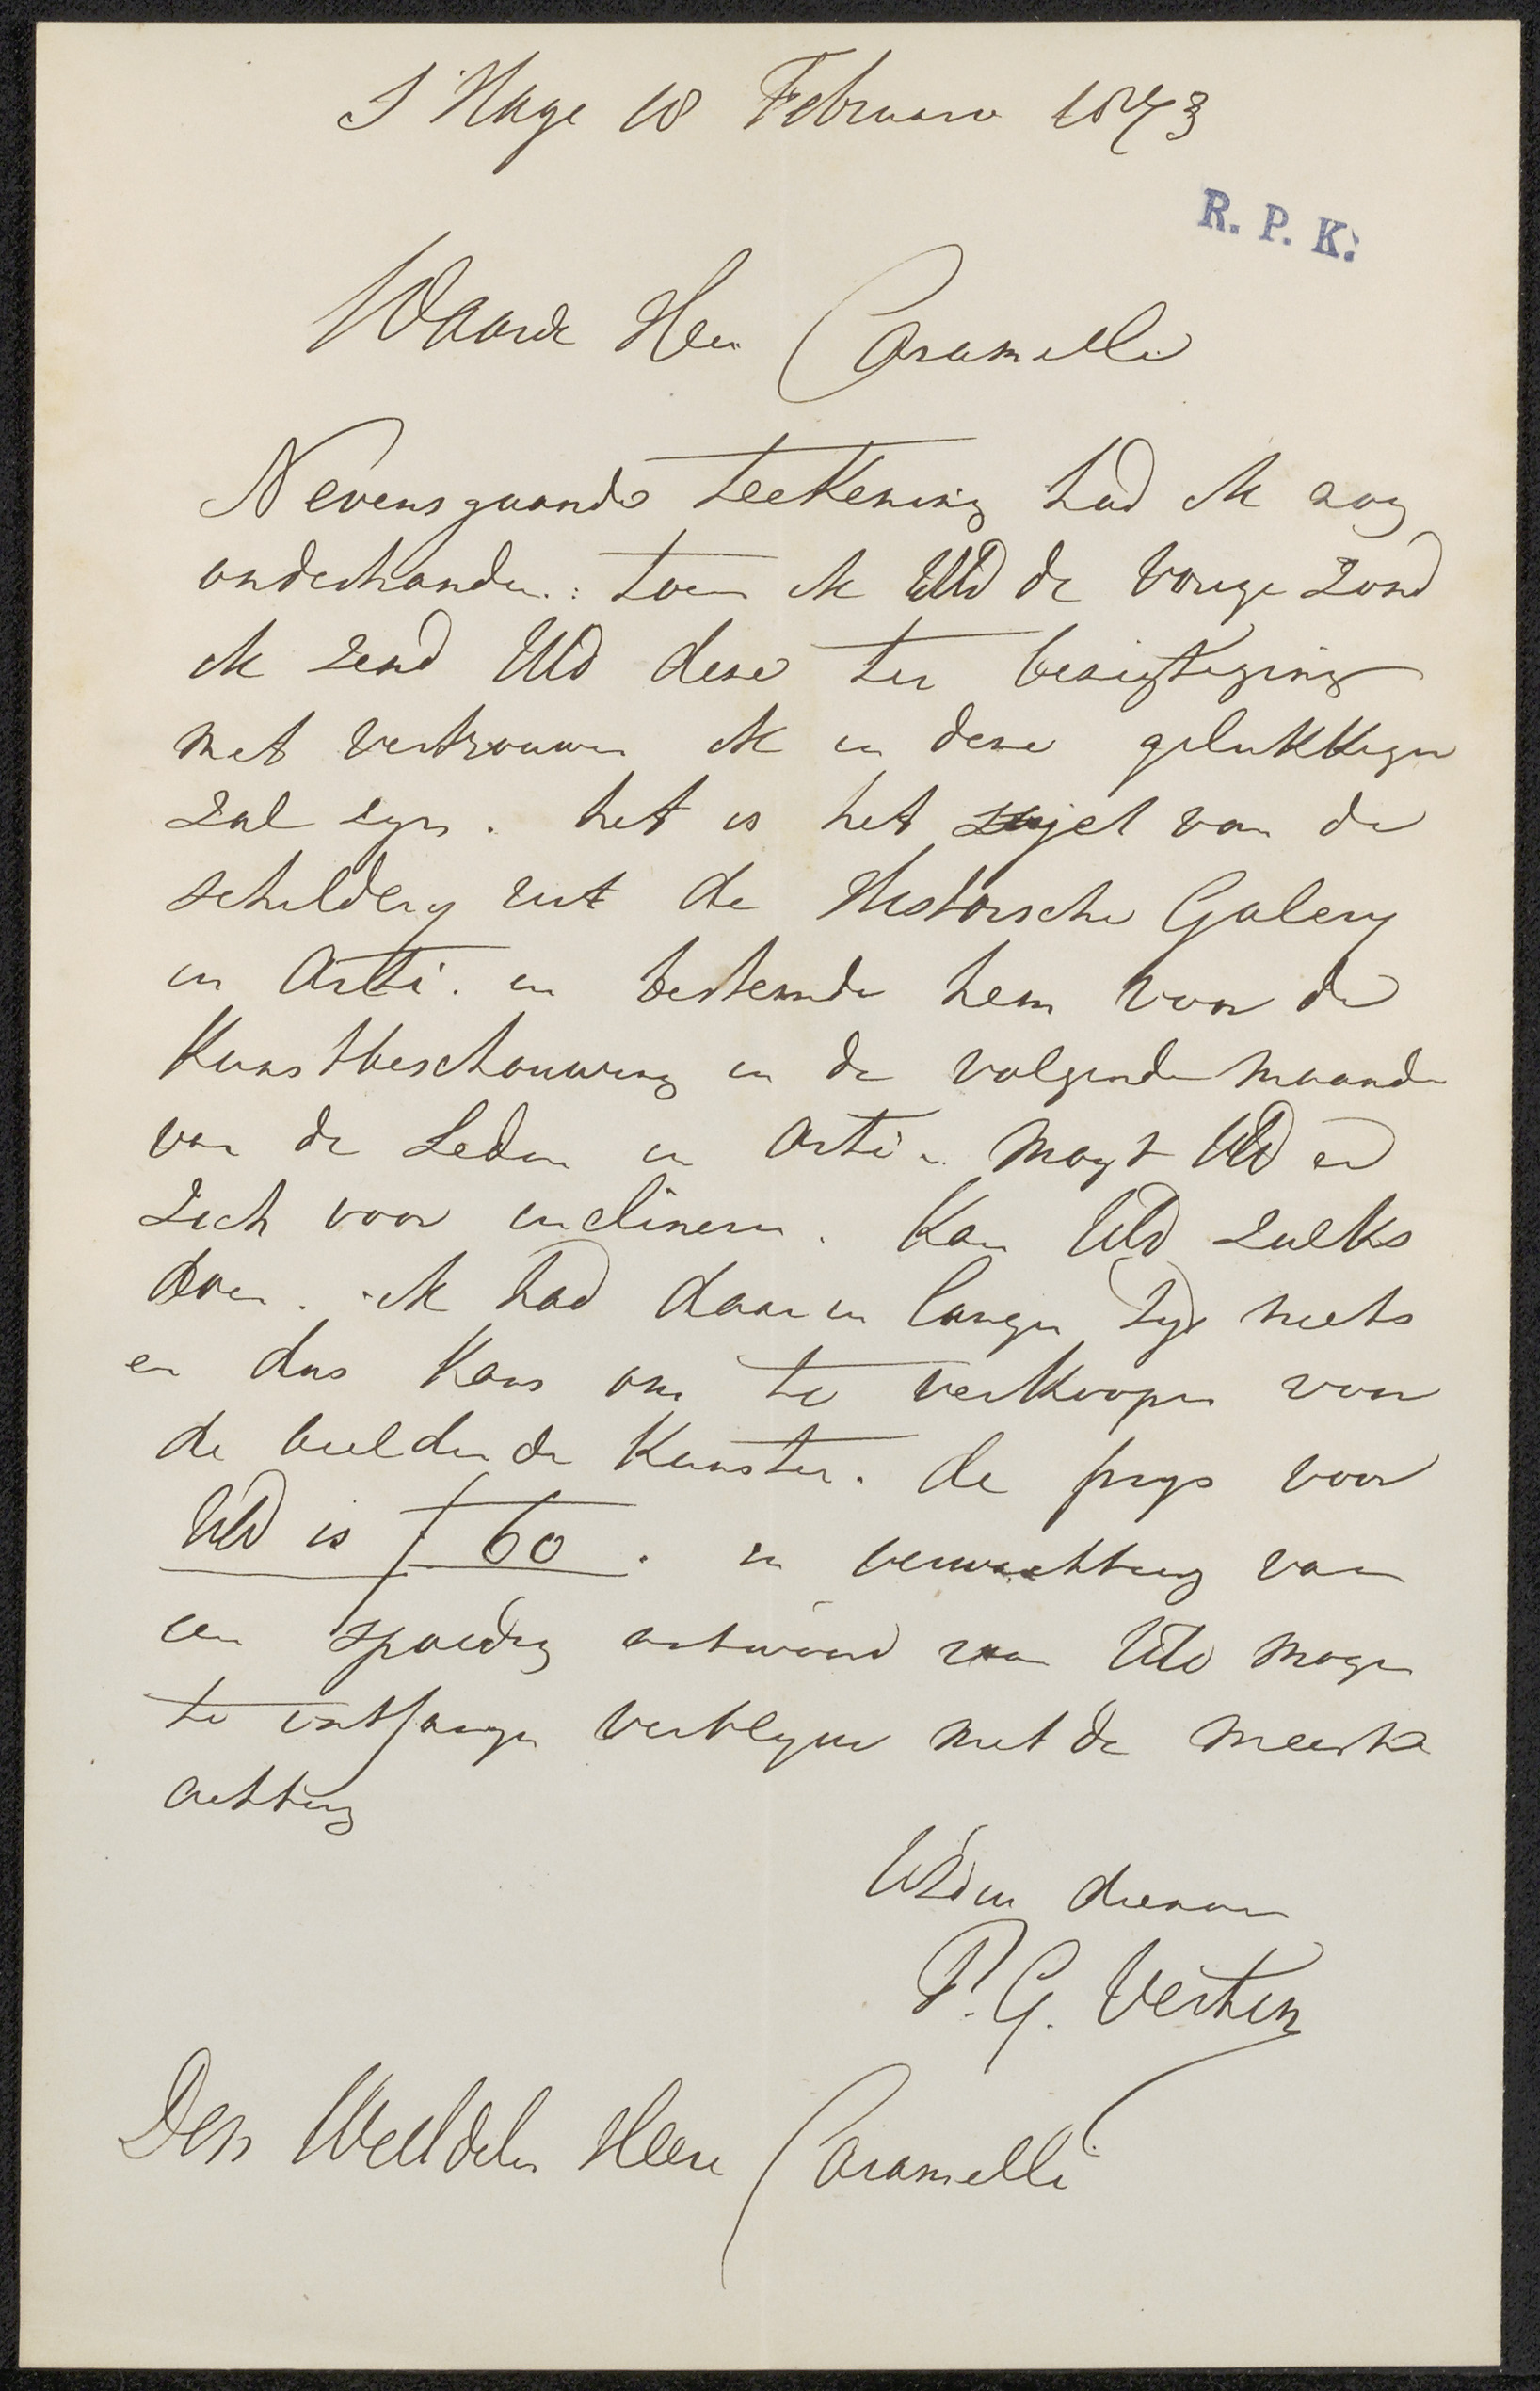 S' Hage 18 Februari 1873
R. P. K.
Waarde Heer Caramelli
Nevensgaande teekening had ik nog
onderhanden: toen ik UEd de vorige zond
ik zend UEd deze ter bezigtiging
met vertrouwen ik in deze gelukkiger
zal zyn. het is het sujet van de
schildery uit de Historische Galery
in Arti. en bestemde hem voor de
Kunstbeschouwing in de volgende maande
van de Leden in Arti. mogt UEd er
zich voor inclineren. Kan UEd zulks
doen. ik had daar in langen tyd niets
en dus Kans om te verkoopen voor
de beeldende Kunsten. de prys voor
UEd is f 60. in verwachting van
een spoedig antwoord van UEd mogen
te ontfangen verblyve met de meeste
achting
UEd dw dienaar
P. G. Vertin
Den WelEdelen Heere Caramelli